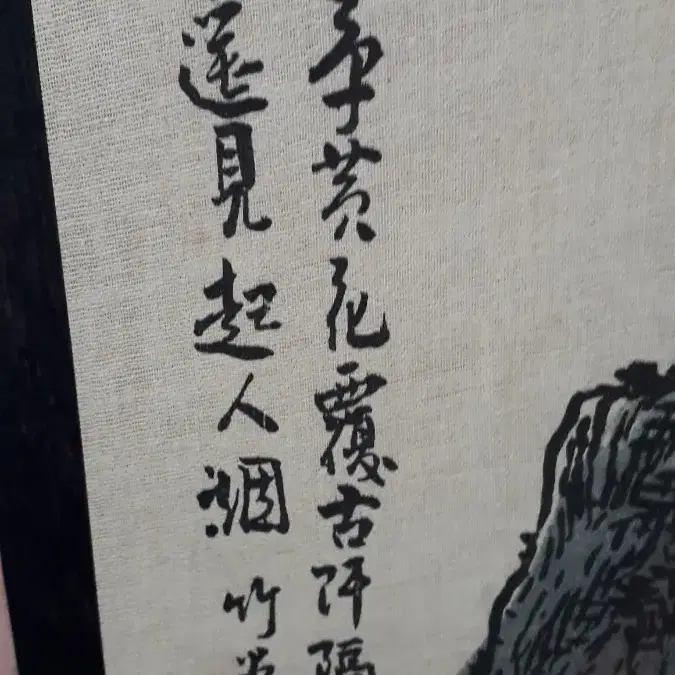 黃花覆古阡隔
遙見起人烟 竹